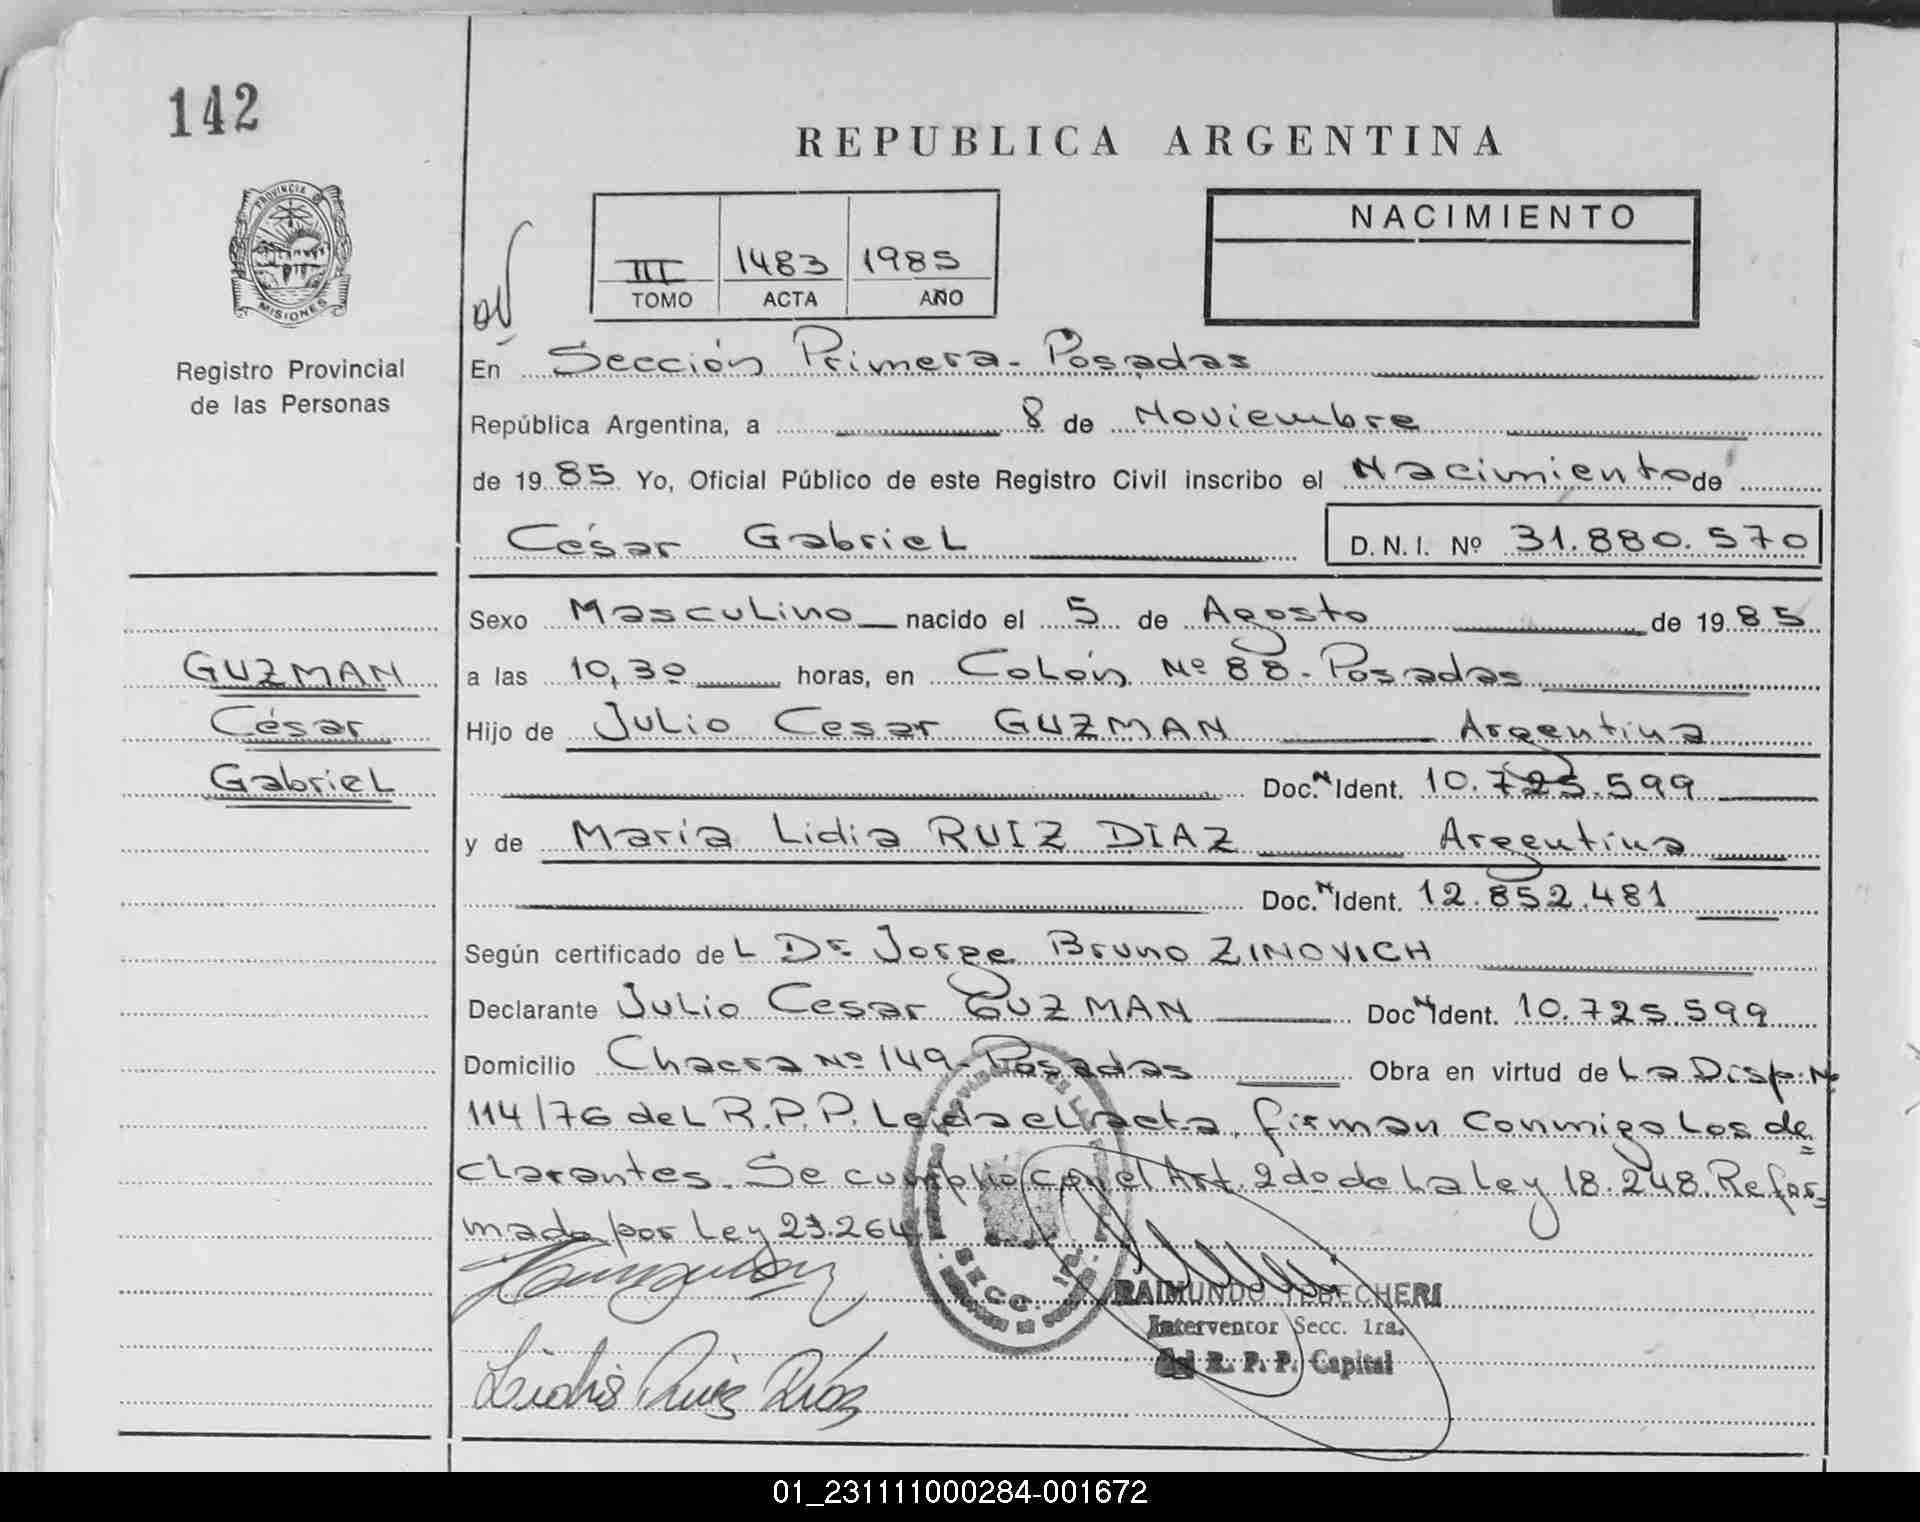 142
REPUBLICA ARGENTINA
PROVINCIA D
MISIONES
Registro Provincial
de las Personas
III 1483 1985
TOMO ACTA AÑO
NACIMIENTO
En Sección Primera - Posadas
República Argentina, a 8 de Noviembre
de 19 85 Yo, Oficial Público de este Registro Civil inscribo el Nacimiento de
César Gabriel D.N.I. Nº 31.880.570
Sexo Masculino nacido el 5 de Agosto de 19 85
GUZMAN
César
Gabriel
a las 10,30 horas, en Colón Nº 88 - Posadas
Hijo de Julio Cesar GUZMAN Argentina
Doc. N Ident. 10.725.599
y de María Lidia RUIZ DIAZ Argentina
Doc. N Ident. 12.852.481
Según certificado de L Dr Jorge Bruno ZINOVICH
Declarante Julio Cesar GUZMAN Doc N Ident. 10.725.599
Domicilio Chacra Nº 149 - Posadas Obra en virtud de La Disp. Nº
114/76 del R.P.P. Leida el acta, firman conmigo los de
clarantes. Se cumplió con el Art. 2do de la Ley 18.248. Refor-
mado por Ley 23.264
SECC. 1ra.
RAIMUNDO TEBECHERI
Interventor Secc. 1ra.
del R. P. P. Capital
Lidia Ruiz Diaz
01_231111000284-001672